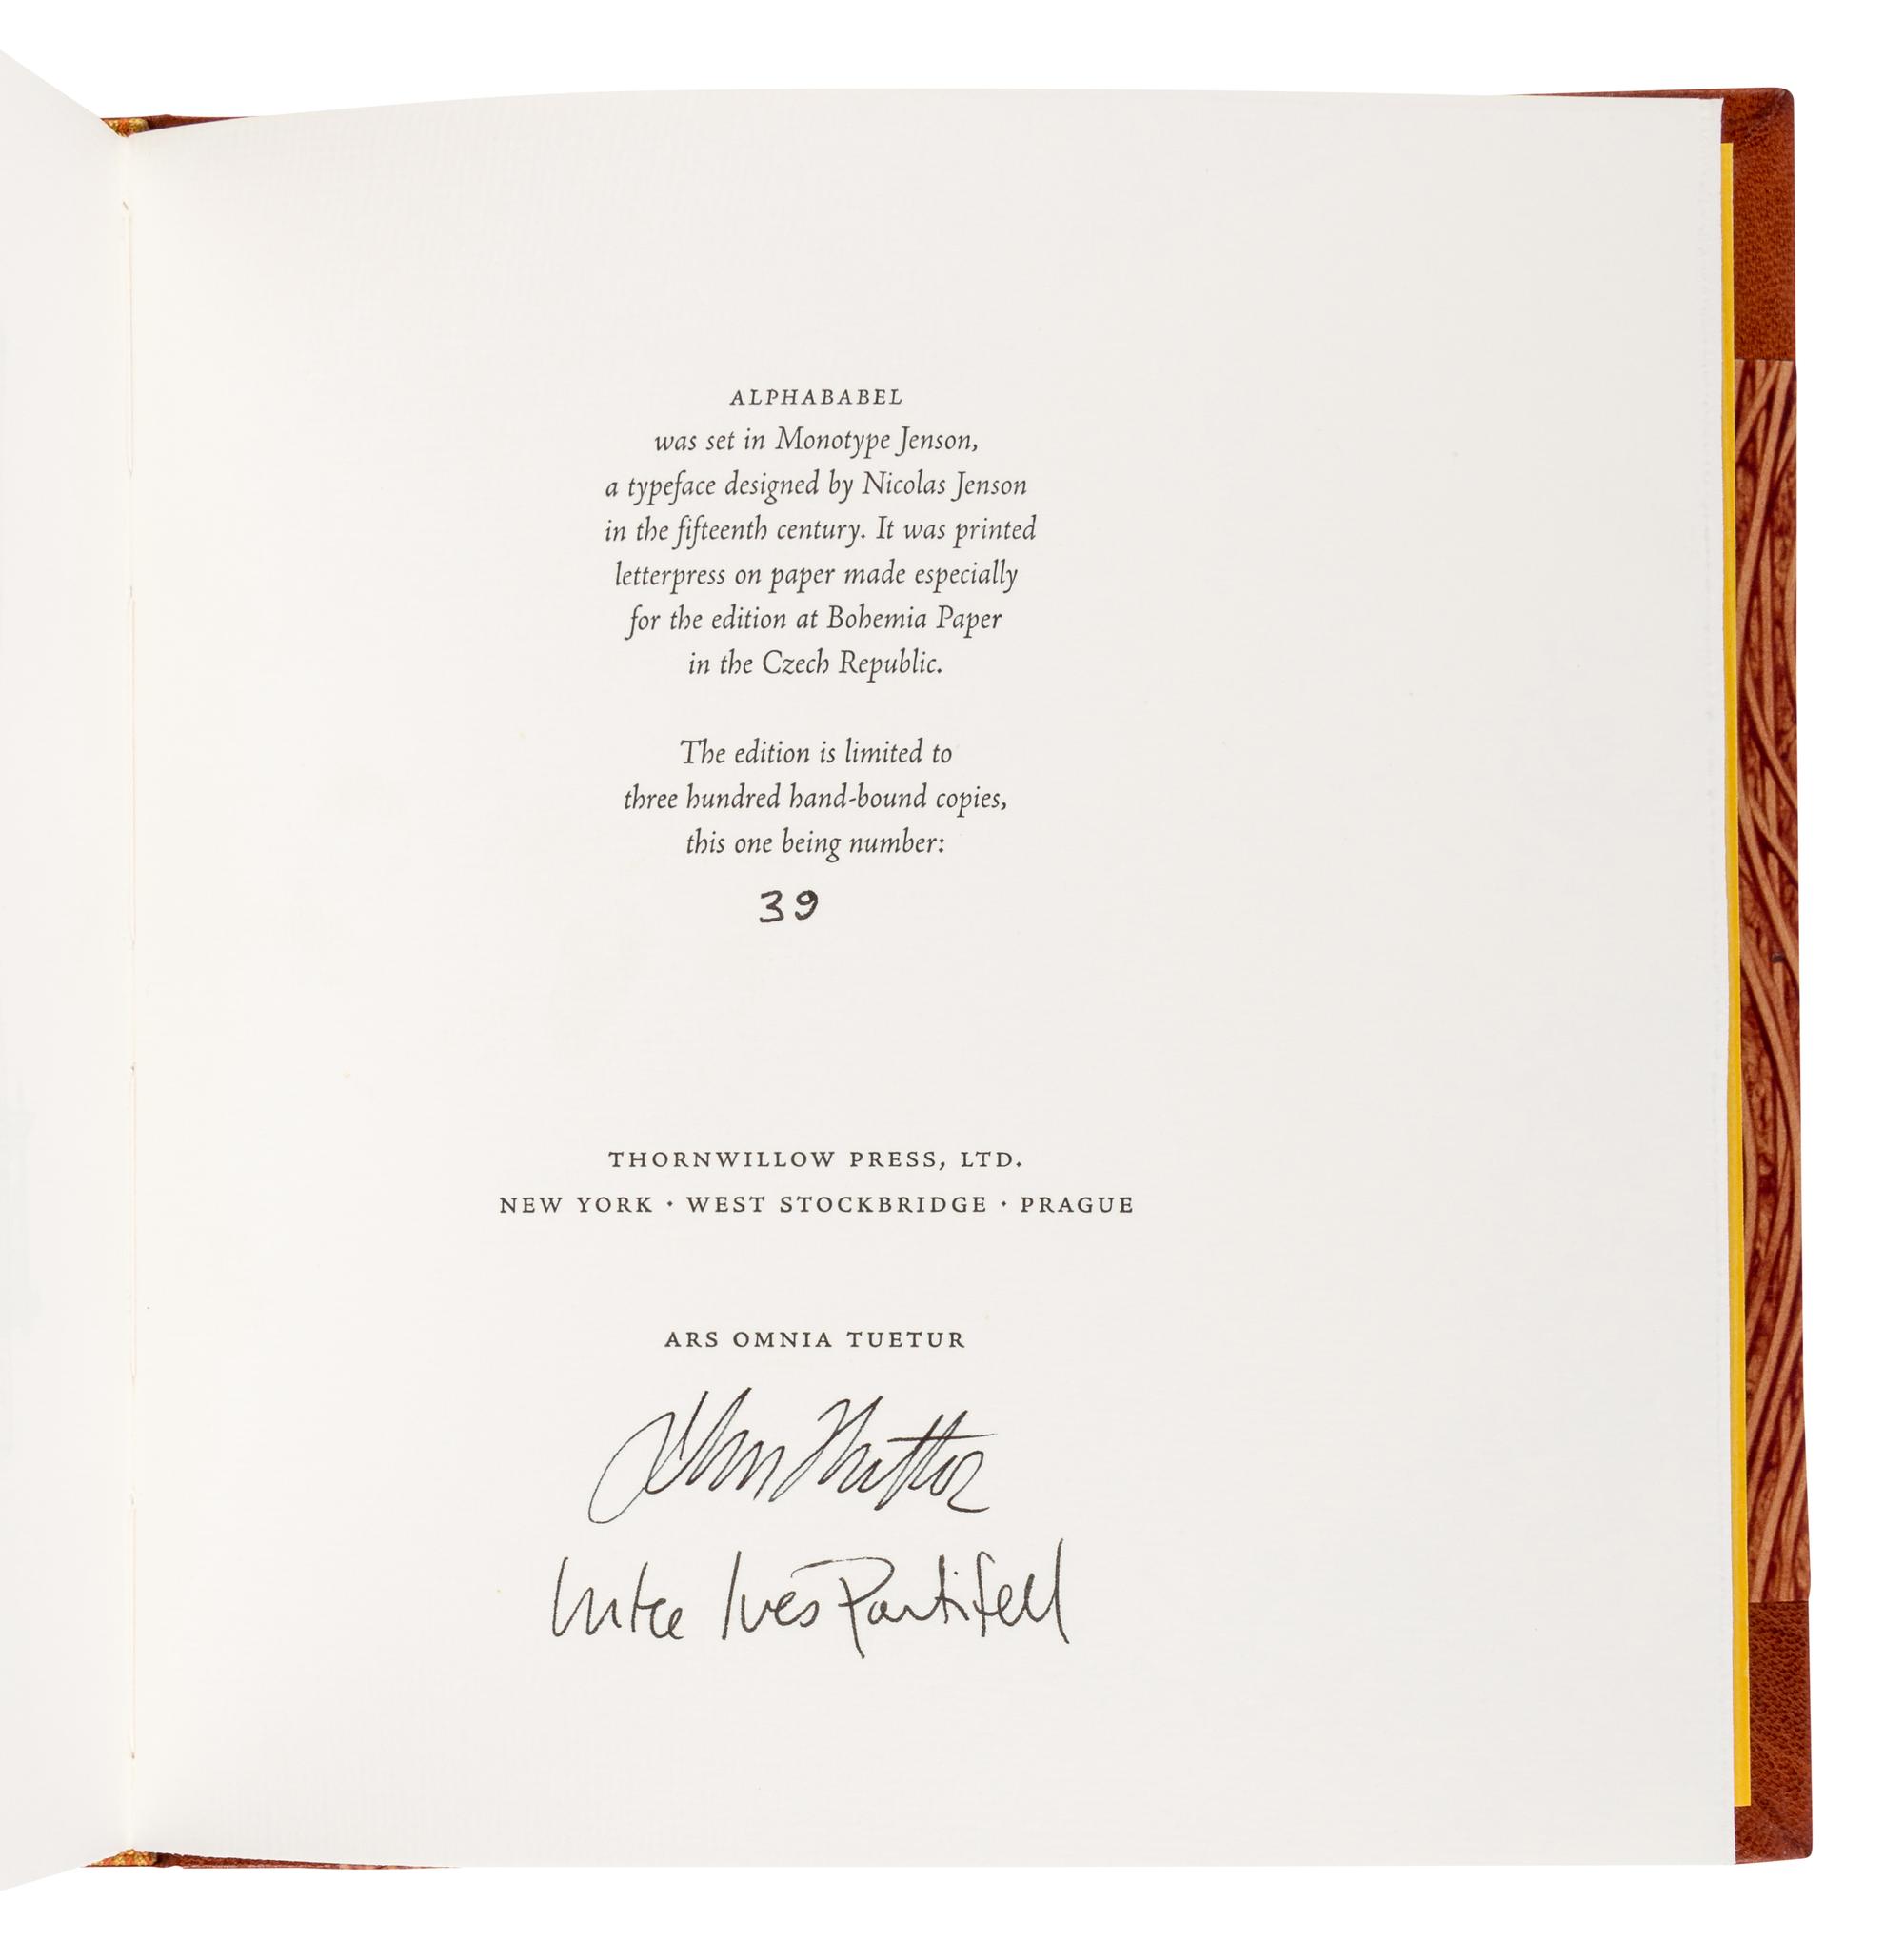 ALPHABABEL
was set in Monotype Jenson,
a typeface designed by Nicolas Jenson
in the fifteenth century. It was printed
letterpress on paper made especially
for the edition at Bohemia Paper
in the Czech Republic.
The edition is limited to
three hundred hand-bound copies,
this one being number:
39
THORNWILLOW PRESS, LTD.
NEW YORK · WEST STOCKBRIDGE · PRAGUE
ARS OMNIA TUETUR
John
Ives